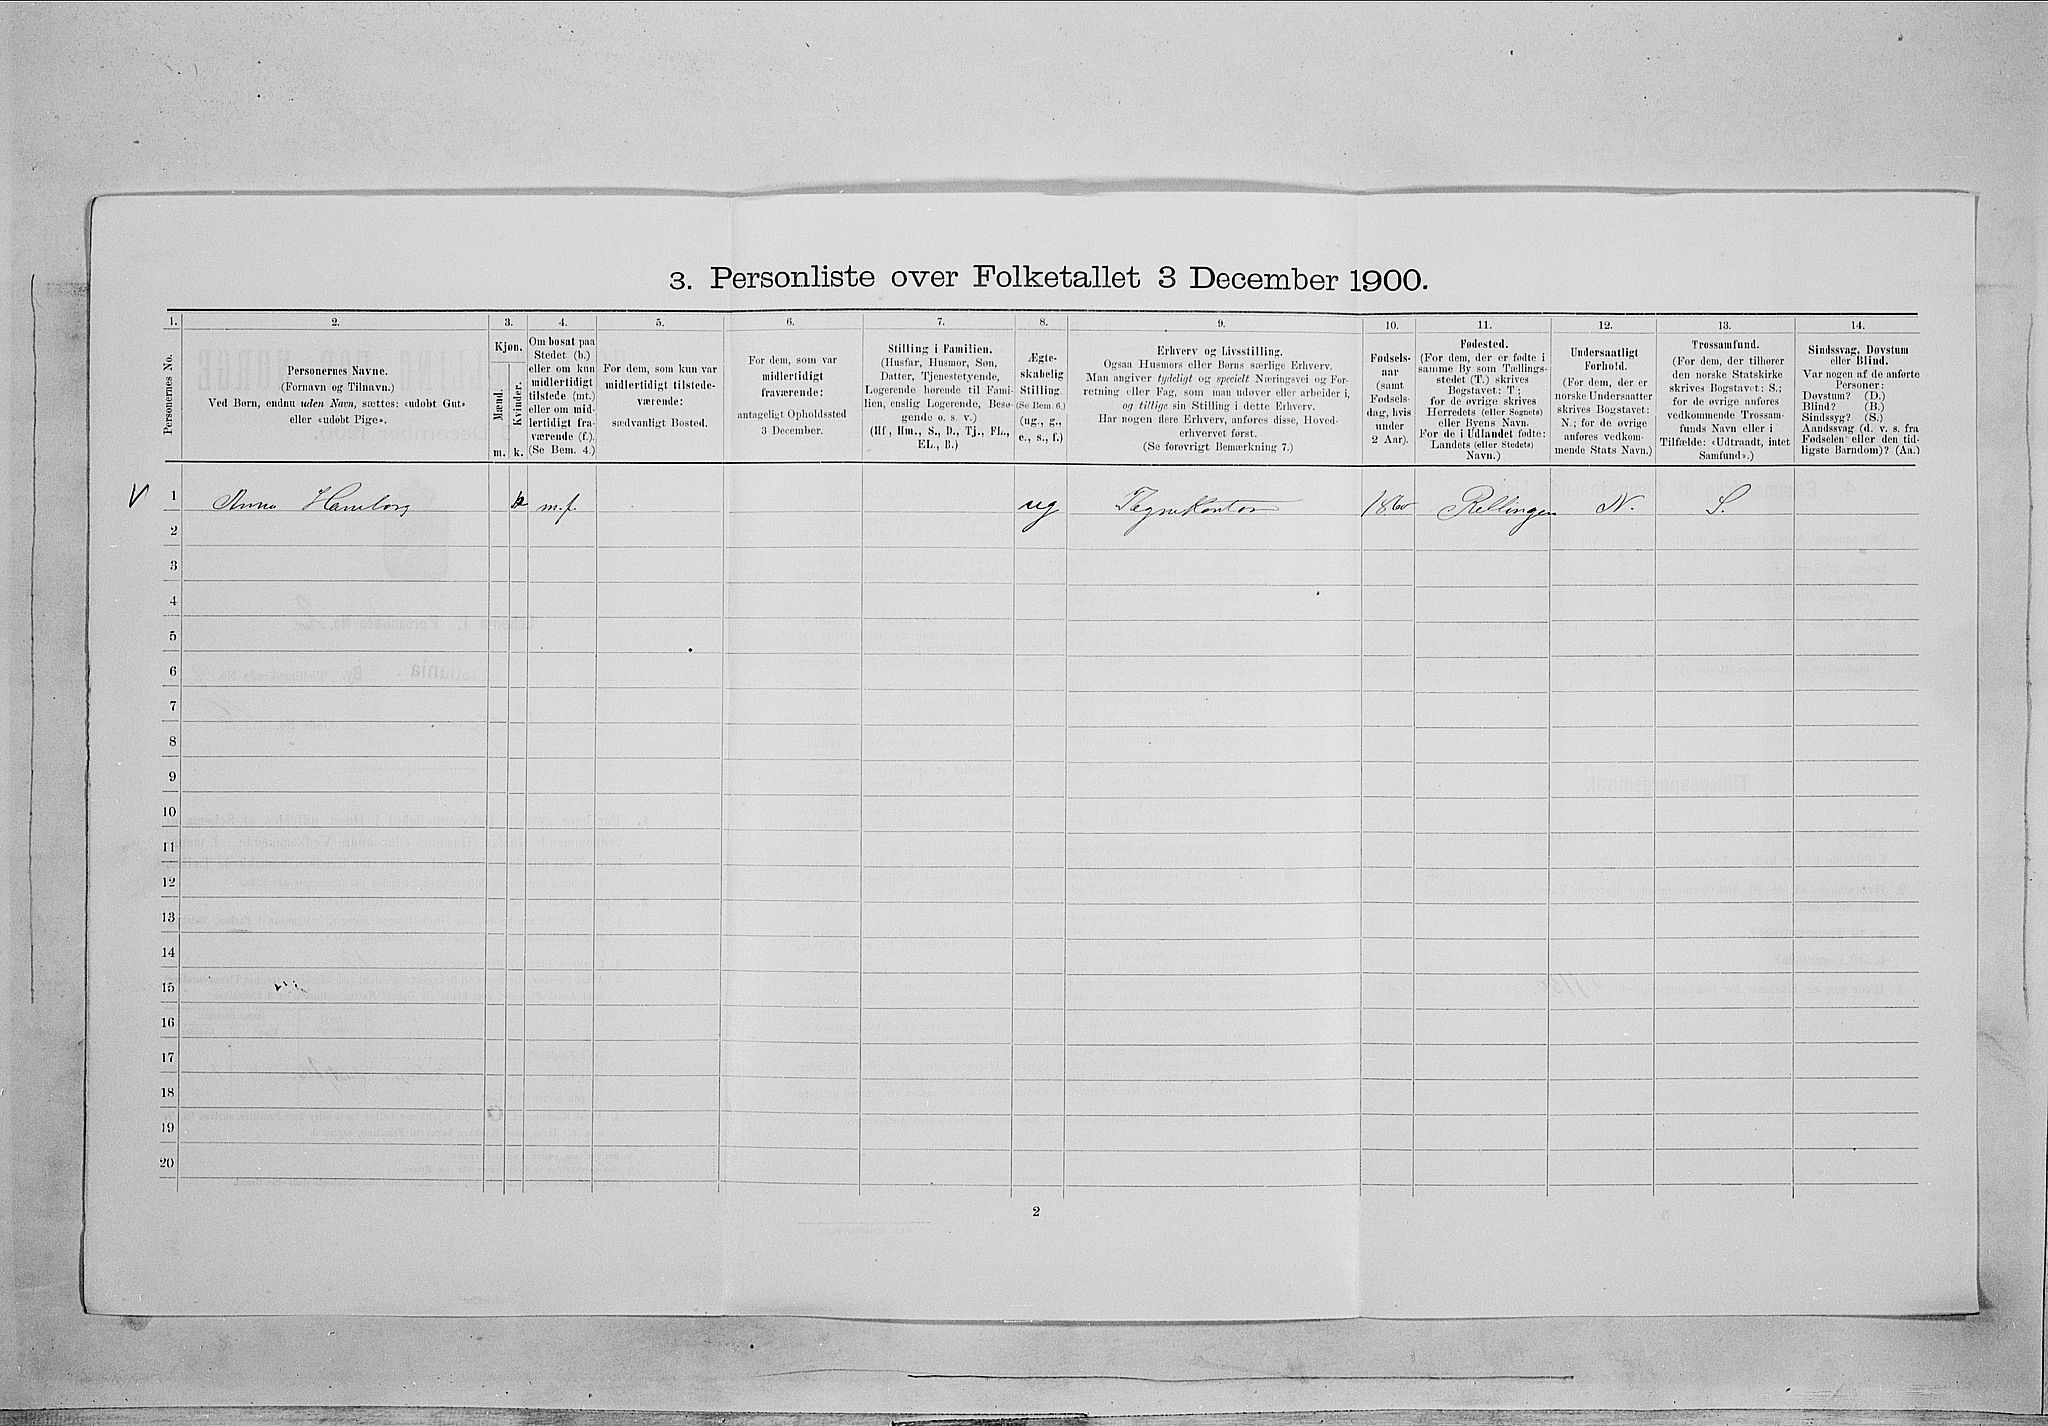 3. Personliste over Folketallet 3 December 1900.
1. 2. 3. 4. 5. 6. 7. 8. 9. 10. 11. 12. 13. 14.
Personernes No.
Personernes Navne.
(Fornavn og Tilnavn.)
Ved Børn, endnu uden Navn, sættes: «udøbt Gut»
eller «udøbt Pige».
Kjøn.
Mænd.
Kvinder.
m. k.
Om bosat paa
Stedet (b.)
eller om kun
midlertidigt
tilstede (mt.)
eller om mid-
lertidigt fra-
værende (f.).
(Se Bem. 4.)
For dem, som kun var
midlertidigt tilstede-
værende:
sædvanligt Bosted.
For dem, som var
midlertidigt
fraværende:
antageligt Opholdssted
3 December.
Stilling i Familien.
(Husfar, Husmor, Søn,
Datter, Tjenestetyende,
Logerende hørende til Fami-
lien, enslig Logerende, Besø-
gende o. s. v.)
(Hf, Hm., S., D., Tj., FL.,
EL., B.)
Ægte-
skabelig
Stilling.
(Se Bem. 6.)
(ug., g.,
e., s., f.)
Erhverv og Livsstilling.
Ogsaa Husmors eller Børns særlige Erhverv.
Man angiver tydeligt og specielt Næringsvei og For-
retning eller Fag, som man udøver eller arbeider i,
og tillige sin Stilling i dette Erhverv.
Har nogen flere Erhverv, anføres disse, Hoved-
erhvervet først.
(Se forøvrigt Bemærkning 7.)
Fødsels-
aar
(samt
Fødsels-
dag, hvis
under
2 Aar).
Fødested.
(For dem, der er fødte i
samme By som Tællings-
stedet (T.) skrives
Bogstavet: T;
for de øvrige skrives
Herredets (eller Sognets)
eller Byens Navn.
For de i Udlandet fødte:
Landets (eller Stedets)
Navn.)
Undersaatligt
Forhold.
(For dem, der er
norske Undersaatter
skrives Bogstavet:
N.; for de øvrige
anføres vedkom-
mende Stats Navn.)
Trossamfund.
(For dem, der tilhører
den norske Statskirke
skrives Bogstavet: S.;
for de øvrige anføres
vedkommende Trossam-
funds Navn eller i
Tilfælde: «Udtraadt, intet
Samfund».)
Sindssvag, Døvstum
eller Blind.
Var nogen af de anførte
Personer:
Døvstum? (D.)
Blind? (B.)
Sindssyg? (S.)
Aandssvag (d. v. s. fra
Fødselen eller den tid-
ligste Barndom)? (Aa.)
V 1 Anna Hamborg k ug 1860 N. S.
2
3
4
5
6
7
8
9
10
11
12
13
14
15
16
17
18
19
20
2